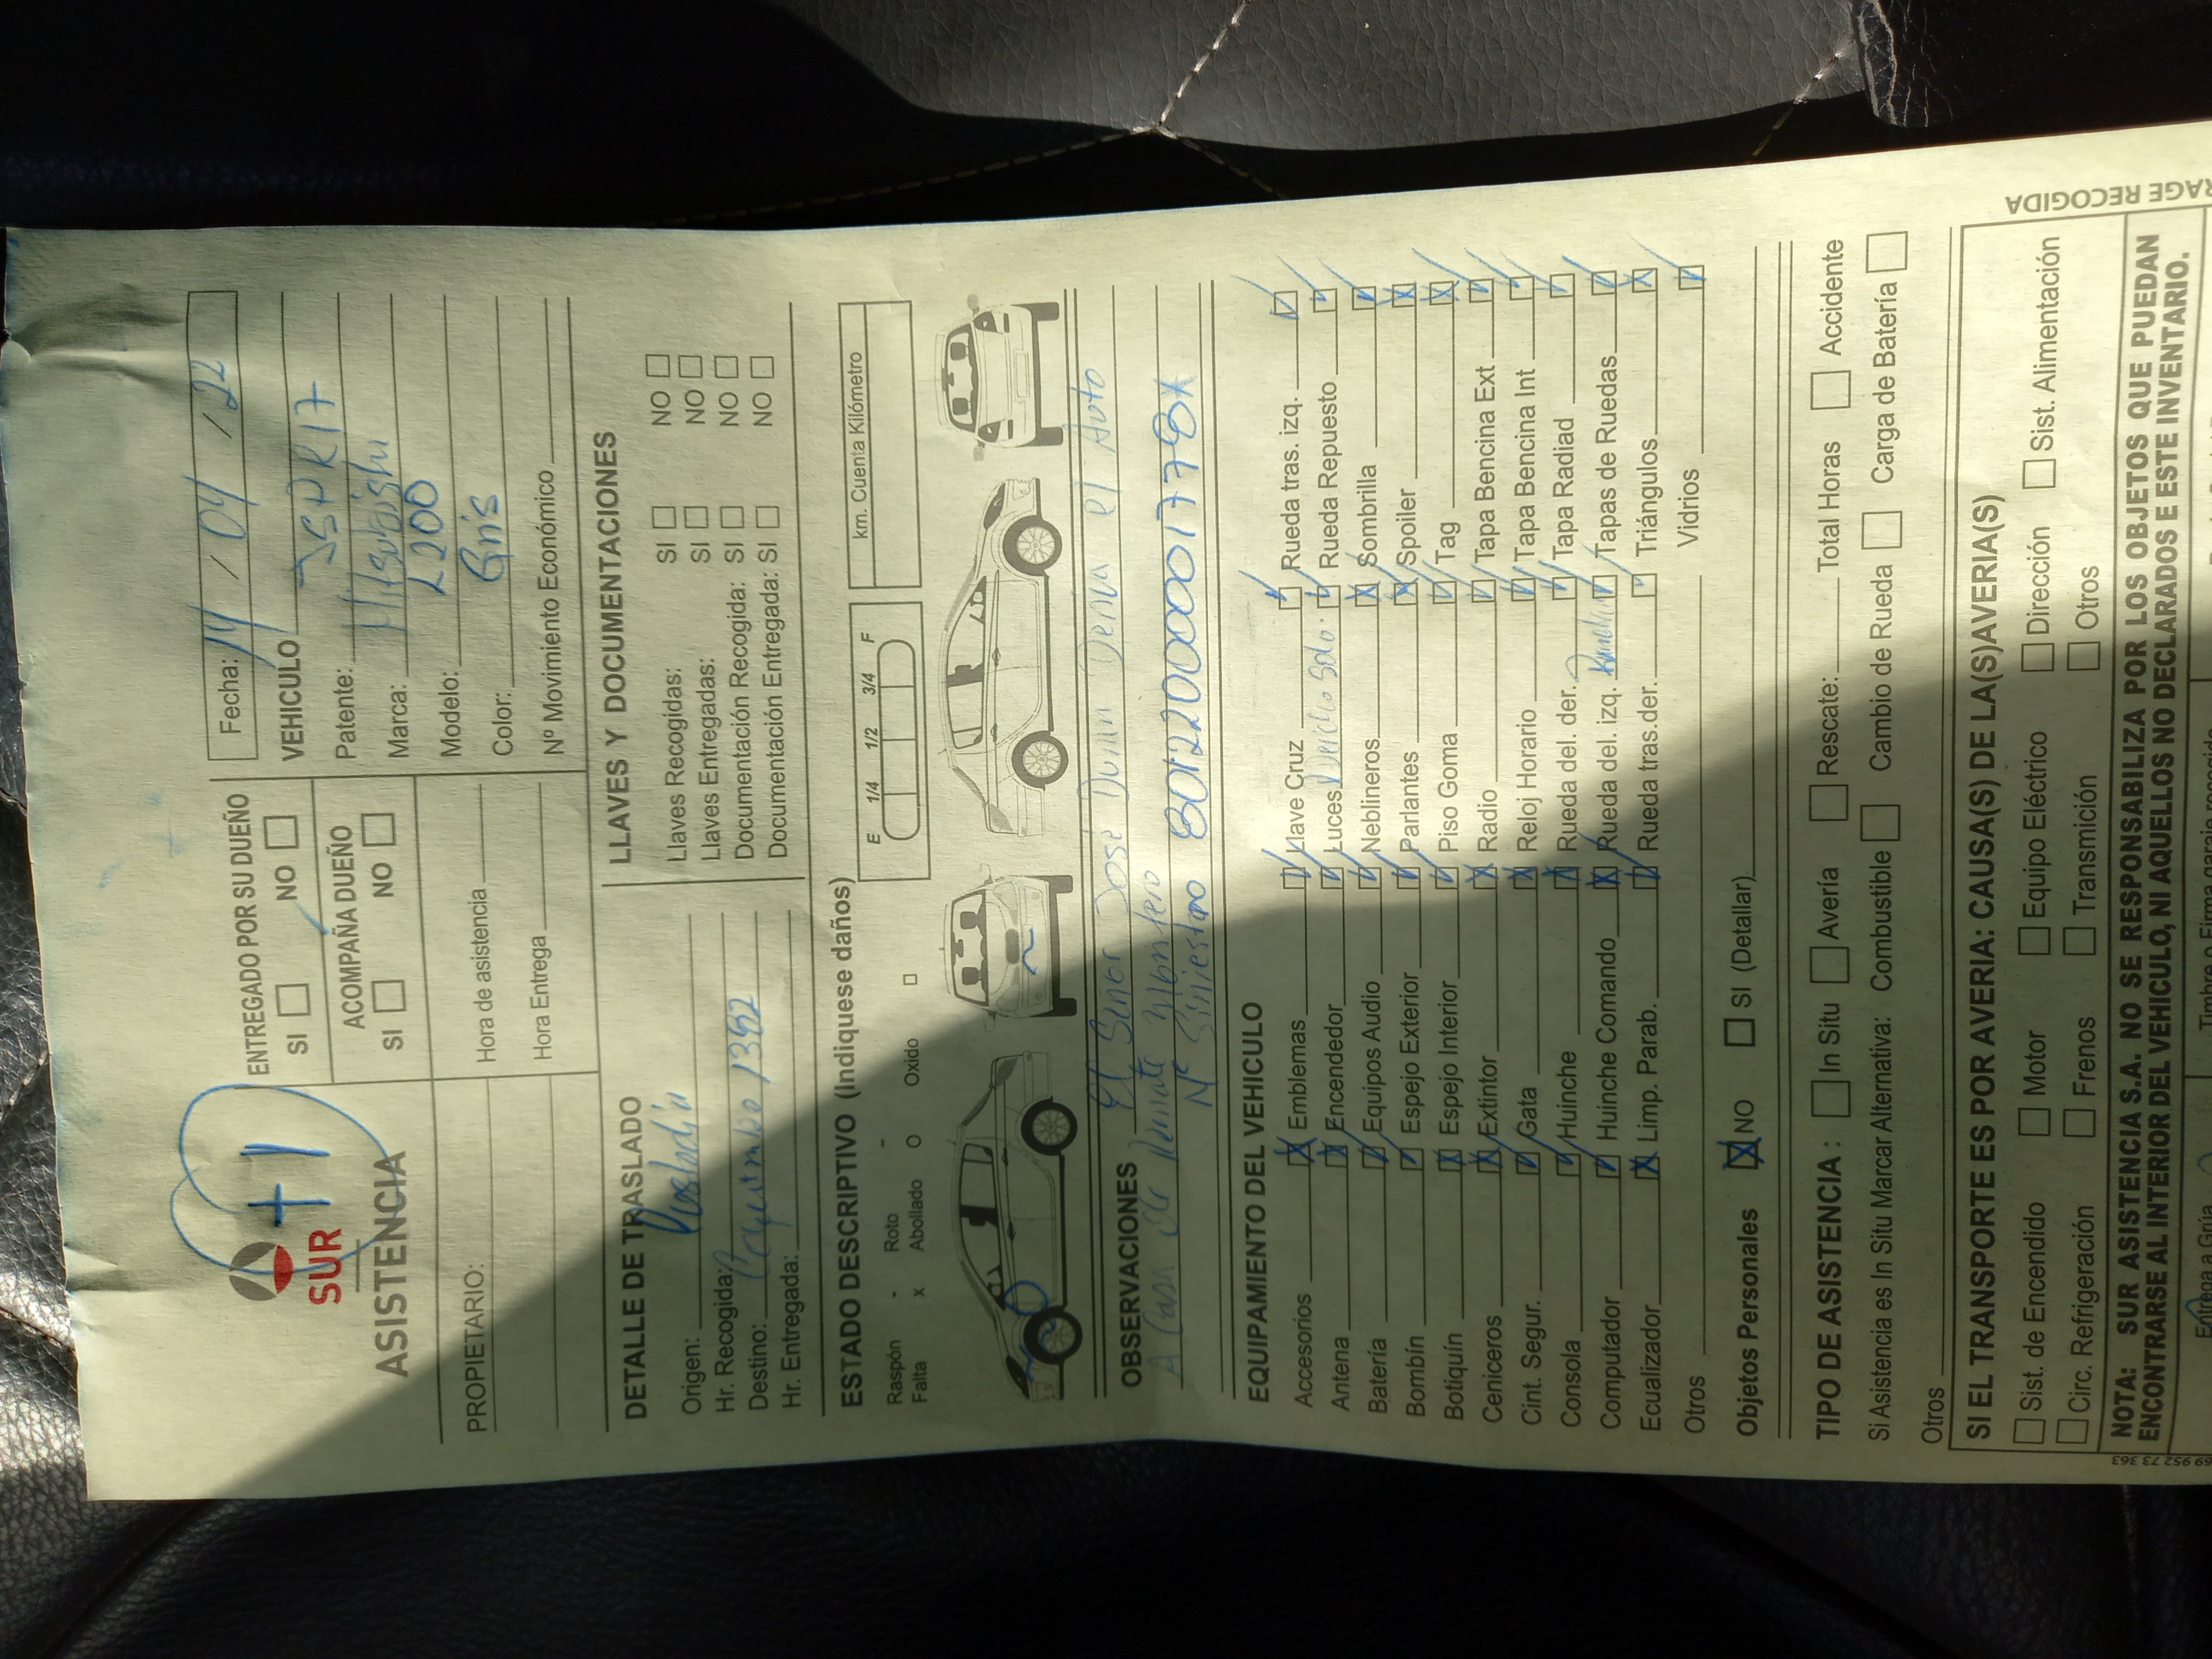 SUR
ASISTENCIA
++1
ENTREGADO POR SU DUEÑO
SI NO
ACOMPAÑA DUEÑO
SI NO
Fecha: 14 / 04 / 22
VEHICULO
Patente: JSPR17
Marca: Mitsubishi
Modelo: L200
Color: Gris
Nº Movimiento Económico
PROPIETARIO:
Hora de asistencia
Hora Entrega
DETALLE DE TRASLADO
Origen:
Hr. Recogida:
Destino: Coquimbo 1392
Hr. Entregada:
LLAVES Y DOCUMENTACIONES
Llaves Recogidas: SI NO
Llaves Entregadas: SI NO
Documentación Recogida: SI NO
Documentación Entregada: SI NO
ESTADO DESCRIPTIVO (Indiquese daños)
Raspón - Roto -
Falta x Abollado O Oxido
E 1/4 1/2 3/4 F
km. Cuenta Kilómetro
OBSERVACIONES El Señor José Duran Deriva el Auto
A Casa de Remate
Nº Siniestro
EQUIPAMIENTO DEL VEHICULO
Accesorios Emblemas Llave Cruz Rueda tras. izq.
Antena Encendedor Luces Derecho Solo. Rueda Repuesto
Batería Equipos Audio Neblineros Sombrilla
Bombín Espejo Exterior Parlantes Spoiler
Botiquín Espejo Interior Piso Goma Tag
Ceniceros Extintor Radio Tapa Bencina Ext
Cint. Segur. Gata Reloj Horario Tapa Bencina Int
Consola Huinche Rueda del. der. Tapa Radiad
Computador Huinche Comando Rueda del. izq. Tapas de Ruedas
Ecualizador Limp. Parab. Rueda tras.der. Triángulos
Otros Vidrios
Objetos Personales NO SI (Detallar)
TIPO DE ASISTENCIA : In Situ Avería Rescate: Total Horas Accidente
Si Asistencia es In Situ Marcar Alternativa: Combustible Cambio de Rueda Carga de Batería
Otros
SI EL TRANSPORTE ES POR AVERIA: CAUSA(S) DE LA(S)AVERIA(S)
Sist. de Encendido Motor Equipo Eléctrico Dirección Sist. Alimentación
Circ. Refrigeración Frenos Transmición Otros
NOTA: SUR ASISTENCIA S.A. NO SE RESPONSABILIZA POR LOS OBJETOS QUE PUEDAN
ENCONTRARSE AL INTERIOR DEL VEHICULO, NI AQUELLOS NO DECLARADOS E ESTE INVENTARIO.
RAGE RECOGIDA
69 952 73 363